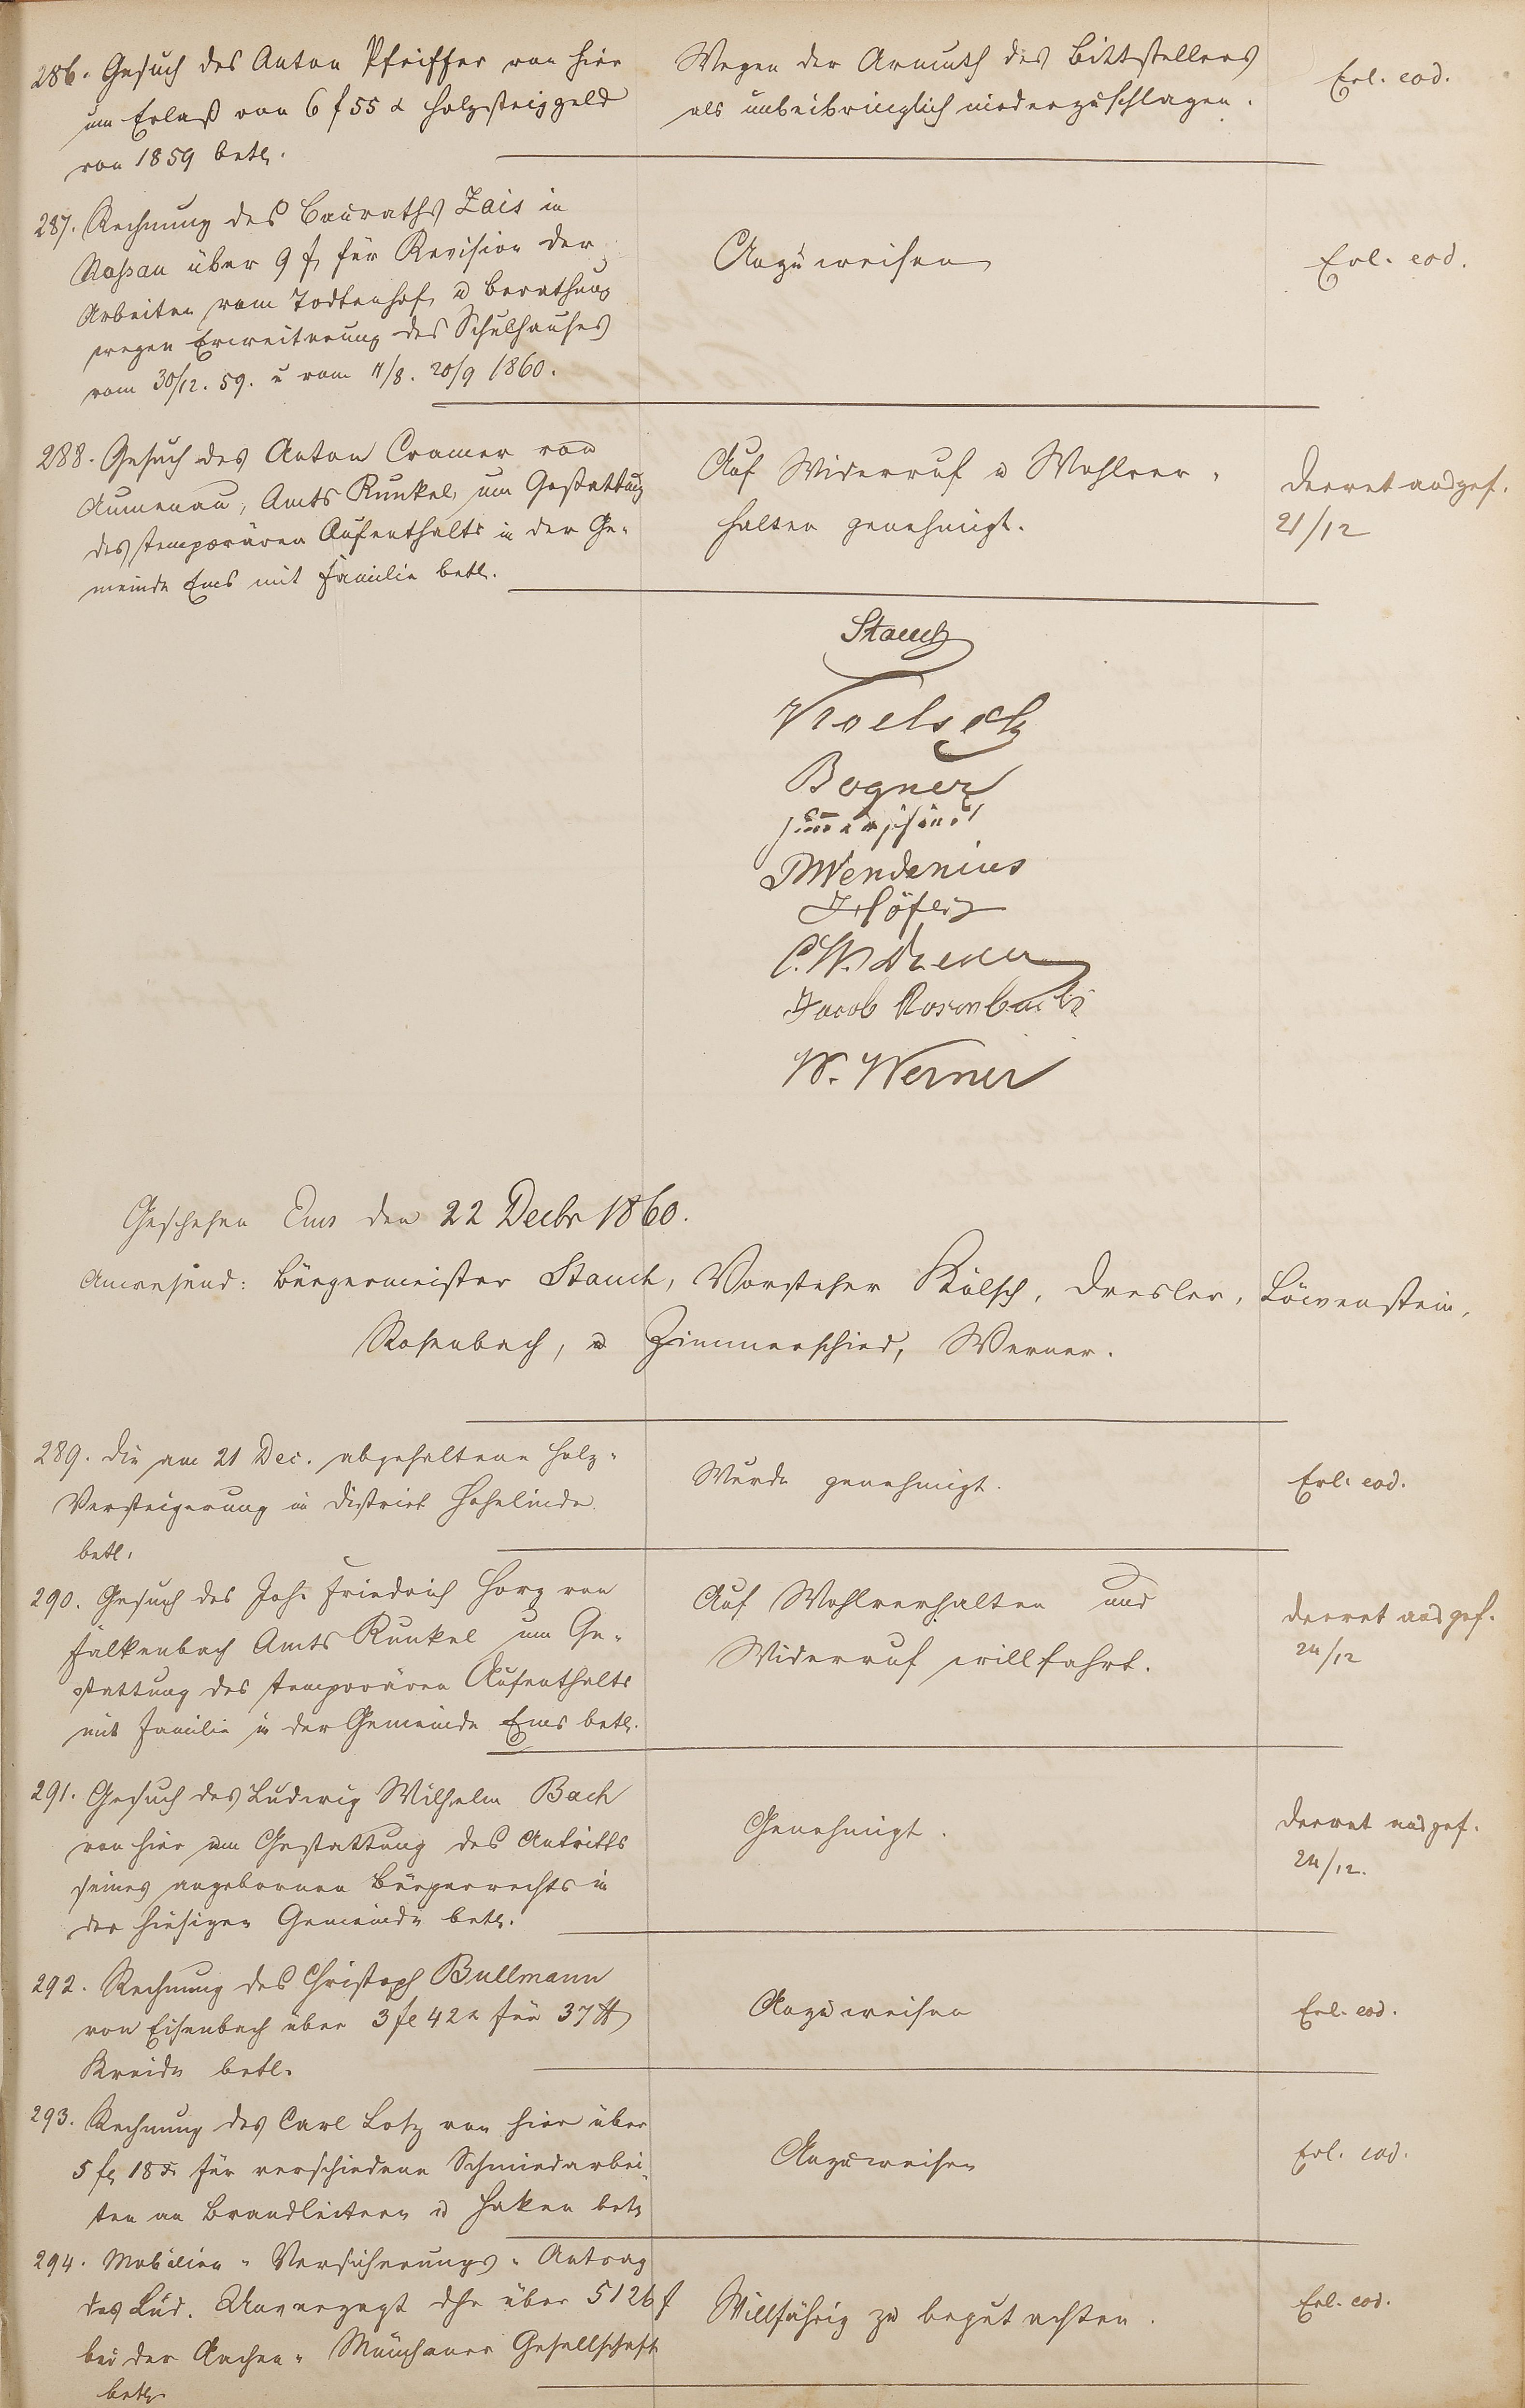 286. Gesuch des Anton Pfeiffer von hier
um Erlaß von 6 f 55 x Holzsteiggeld
von 1859 betr.
Wegen der Armuth des Bittstellers
als unbeibringlich niederzuschlagen.
Erl. eod.
287. Rechnung des Bauraths Zais in
Nassau über 9 f für Revision der
Arbeiten vom Todtenhof u Berathung
wegen Erweiterung des Schulhauses
vom 30/12. 59. u vom 11/8. 20/9 1860.
Anzuweisen
Erl. eod.
288. Gesuch des Anton Cramer von
Aumenau, Amts Runkel, um Gestattung
des temporären Aufenthalts in der Ge-
meinde Ems mit Familie betr.
Auf Widerruf u Wohlver-
halten genehmigt.
Decret ausgef.
21/12
Stauch
Koelsch
Bogner
Zimmerschied
Wendenius
Höfer
C. W. Dresler
Jacob Rosenbach
W. Werner
Geschehen Ems den 22 Decbr 1860.
Anwesend: Bürgermeister Stauch, Vorsteher Kölsch, Dresler, Löwenstein,
Rosenbach, u Zimmerschied, Werner.
289. Die am 21 Dec. abgehaltene Holz-
Versteigerung in District Hohelinde
betr.
Wurde genehmigt.
Erl. eod.
290. Gesuch des Joh. Friedrich Horz von
Falkenbach Amts Runkel um Ge-
stattung des temporären Aufenthalts
mit Familie in der Gemeinde Ems betr.
Auf Wohlverhalten und
Widerruf willfahrt.
Decret ausgef.
24/12
291. Gesuch des Ludwig Wilhelm Bach
von hier um Gestattung des Antritts
seines angebornen Bürgerrechts in
der hiesigen Gemeinde betr.
Genehmigt.
Decret ausgef.
24/12.
292. Rechnung des Christoph Bullmann
von Eisenbach über 3 fl 42 x für 37 ℔
Kreide betr.
Anzuweisen
Erl. eod.
293. Rechnung des Carl Lotz von hier über
5 fl 18 x für verschiedene Schmiedarbei-
ten an Brandleitern u Haken betr
Anzuweisen
Erl. eod.
294. Mobilien-Versicherungs-Antrag
des Lud. Unverzagt dhr über 5126 f
bei der Aachen-Münchener Gesellschaft
betr
Willfährig zu begutachten.
Erl. eod.